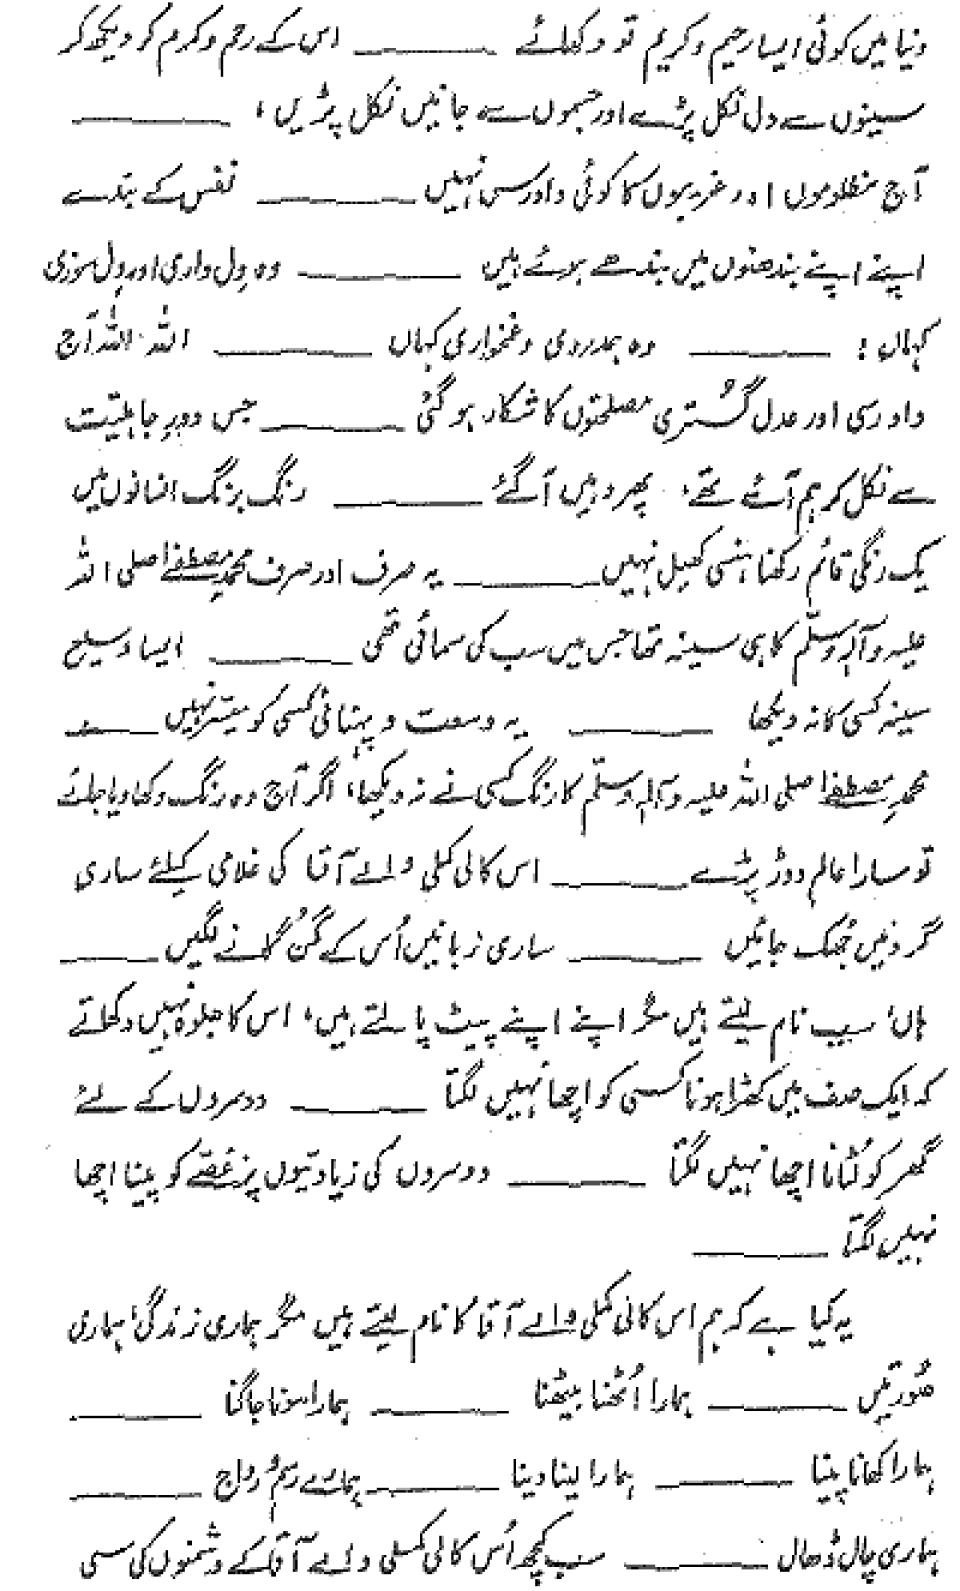 دنیا میں کوئی ایسا رحیم و کریم تو دکھائے ــــــــ اس کے رحم و کرم کو دیکھ کر
سینوں سے دل نکل پڑے اور جسموں سے جانیں نکل پڑیں، ــــــــ
آج مظلوموں اور غریبوں کا کوئی داد رس نہیں ــــــــ نفس کے بندے
اپنے اپنے بندھنوں میں بندھے ہوئے ہیں ــــــــ وہ دِل داری اور دِل سوزی
کہاں؛ ــــــــ وہ ہمدردی و غمخواری کہاں ــــــــ اللہ اللہ آج
داد رسی اور عدل گُستری مصلحتوں کا شکار ہو گئی ــــــــ جس دورِ جاہلیّت
سے نکل کر ہم آئے تھے، پھر وہیں آ گئے ــــــــ رنگ برنگ انسانوں میں
یک رنگی قائم رکھنا ہنسی کھیل نہیں ــــــــ یہ صرف اور صرف محمد مصطفےٰ صلی اللہ
علیہ وآلہٖ وسلّم کا ہی سینہ تھا جس میں سب کی سمائی تھی ــــــــ ایسا وسیع
سینہ کسی کا نہ دیکھا ــــــــ یہ وسعت و پہنائی کسی کو میسّر نہیں ــــــــ
محمدِ مصطفےٰ صلی اللہ علیہ وآلہٖ وسلّم کا رنگ کسی نے نہ دیکھا، اگر آج وہ رنگ دکھا دیا جائے
تو سارا عالم دوڑ پڑے ــــــــ اس کالی کملی والے آقا کی غلامی کیلئے ساری
گردنیں جُھک جائیں ــــــــ ساری زبانیں اُس کے گُن گانے لگیں ــــــــ
ہاں، سب نام لیتے ہیں مگر اپنے اپنے پیٹ پالتے ہیں، اس کا جلوہ نہیں دکھاتے
کہ ایک صف میں کھڑا ہونا کسی کو اچھا نہیں لگتا ــــــــ دوسروں کے لئے
گھر کو لُٹانا اچھا نہیں لگتا ــــــــ دوسروں کی زیادتیوں پر غصّے کو پینا اچھا
نہیں لگتا ــــــــ
یہ کیا ہے کہ ہم اس کالی کملی والے آقا کا نام لیتے ہیں مگر ہماری زندگی، ہماری
صُورتیں ــــــــ ہمارا اُٹھنا بیٹھنا ــــــــ ہمارا سونا جاگنا ــــــــ
ہمارا کھانا پینا ــــــــ ہمارا لینا دینا ــــــــ ہمارے رسم و رواج ــــــــ
ہماری چال ڈھال ــــــــ سب کچھ اُس کالی کملی والے آقا کے دشمنوں کی سی